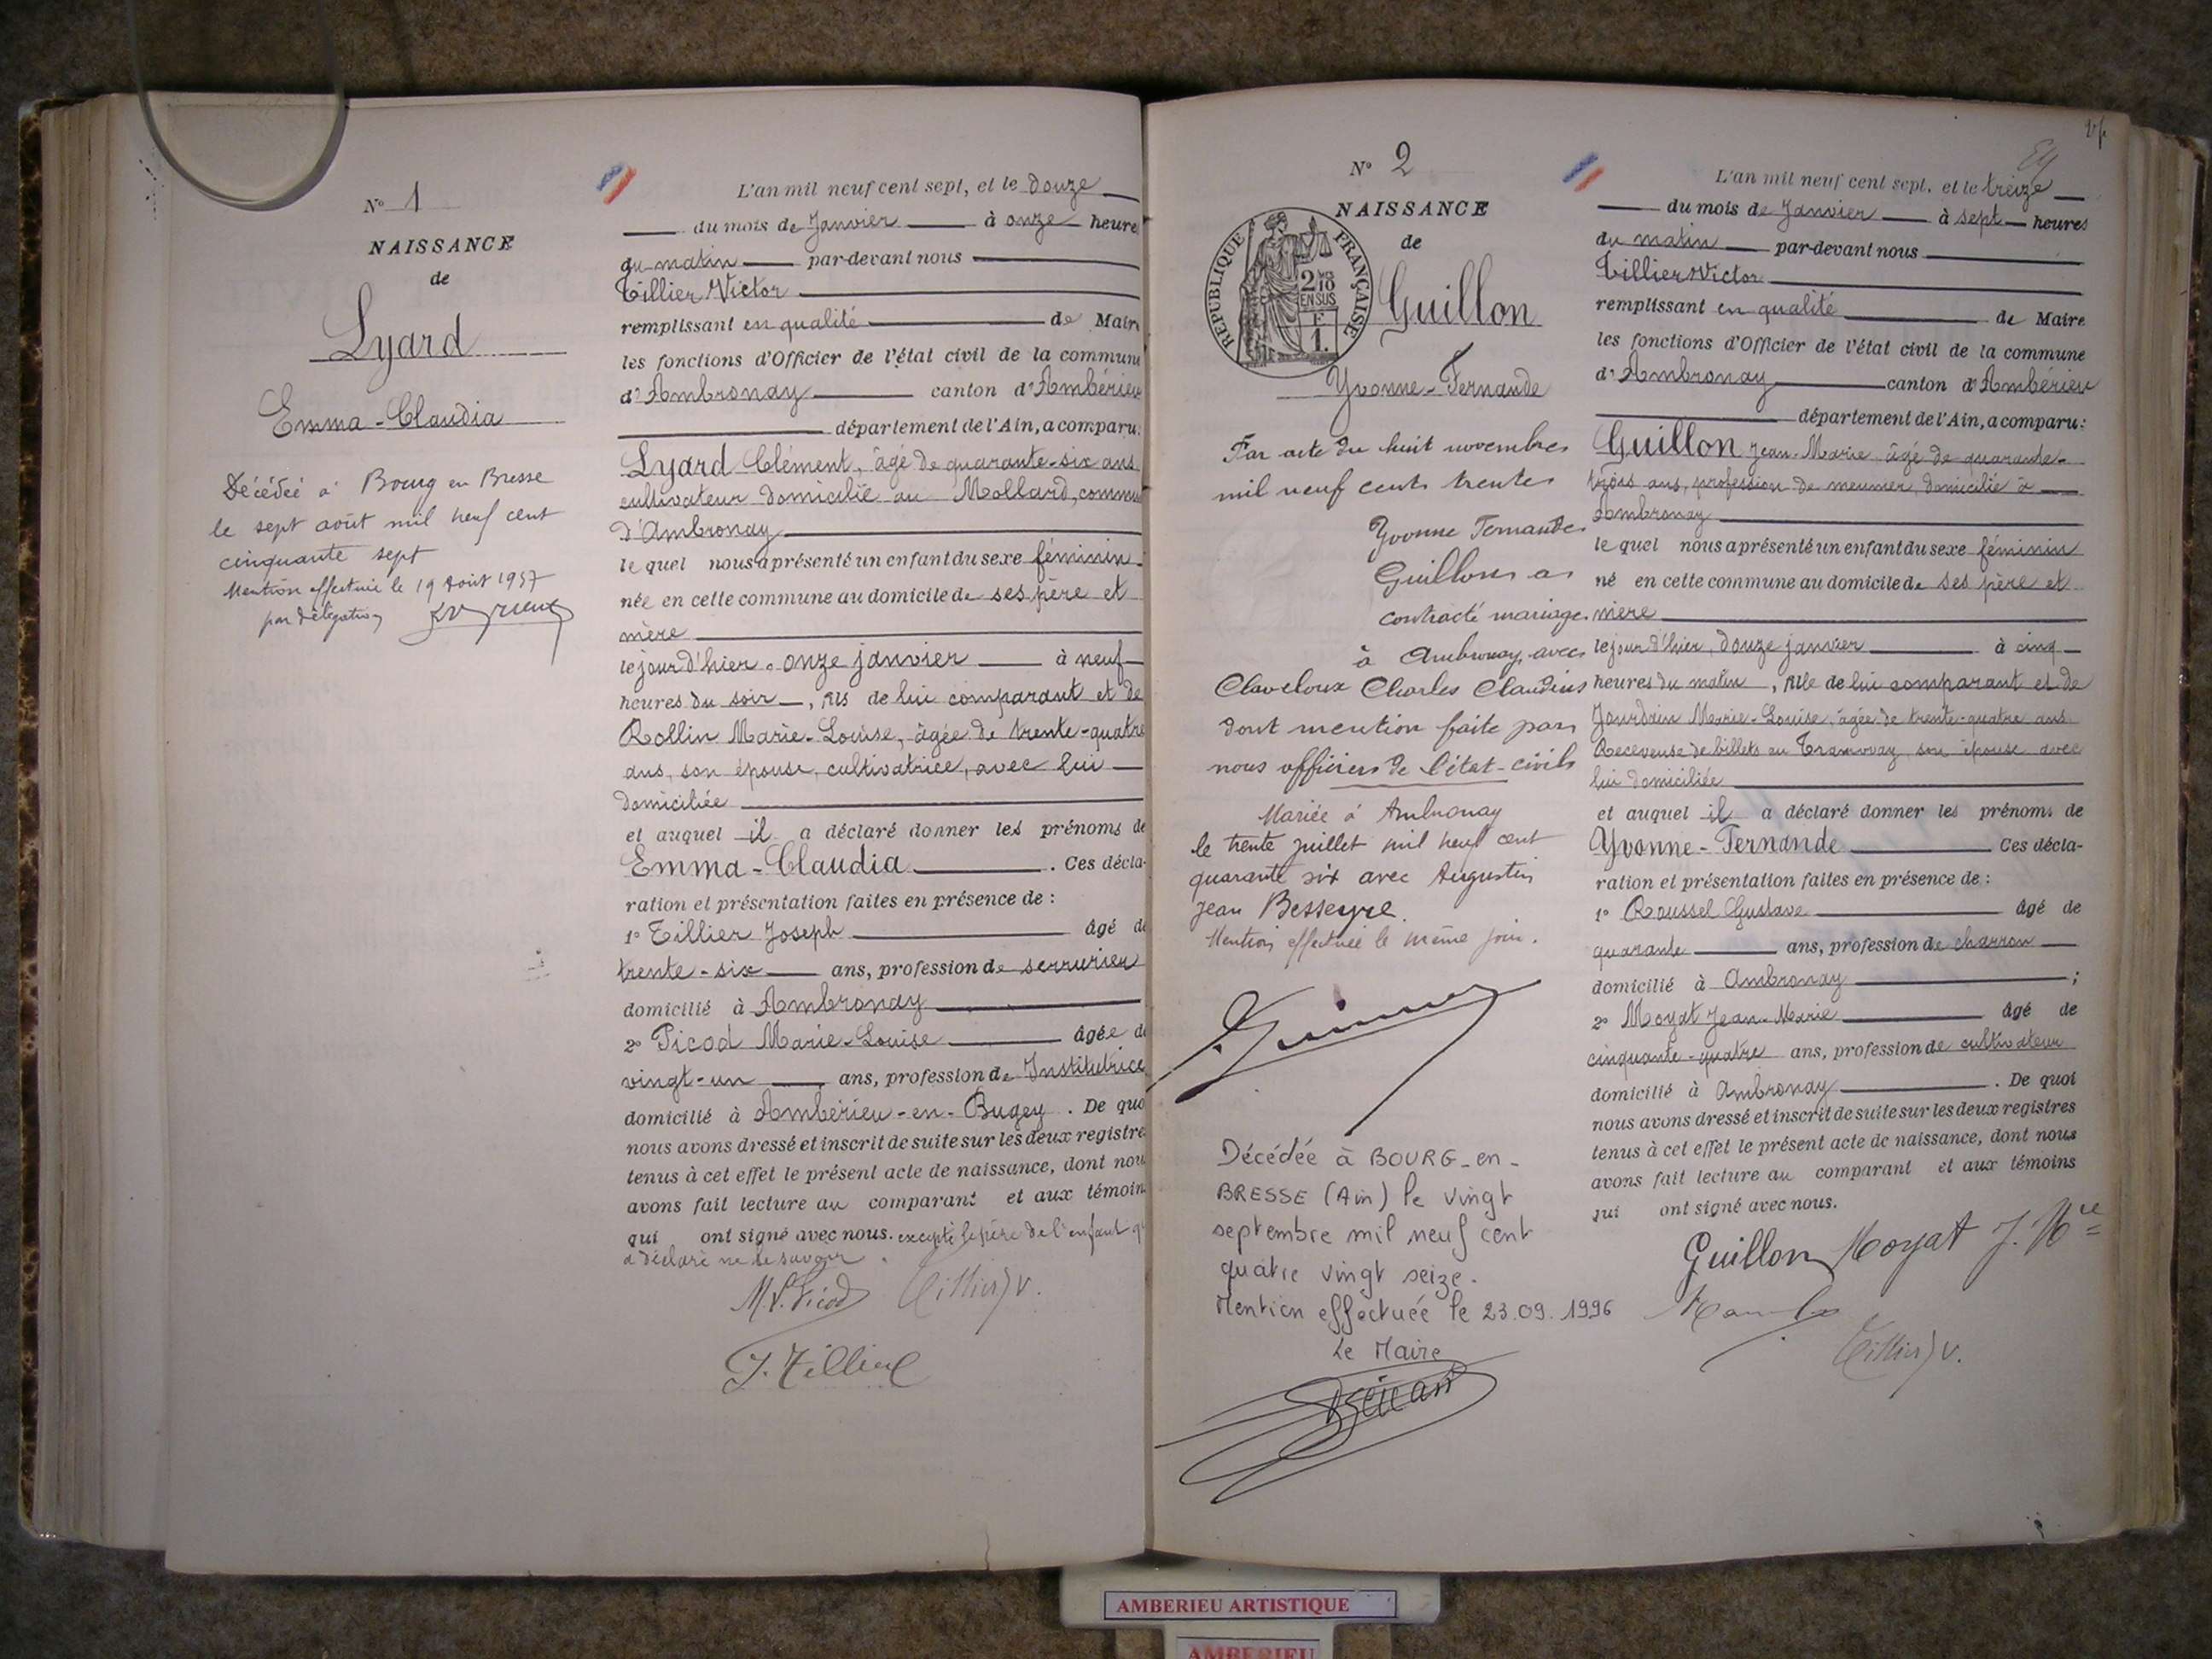 N° 1
NAISSANCE
de
Lyard
Emma-Claudia
Décédée à Bourg en Bresse
le sept août mil neuf cent
cinquante sept
Mention effectuée le 19 Août 1957
par délégation
L'an mil neuf cent sept, et le douze
du mois de Janvier à onze heure
du matin par-devant nous
Tillier Victor
remplissant en qualité de Maire
les fonctions d'Officier de l'état civil de la commune
d'Ambronay canton d'Ambérieu
département de l'Ain, a comparu:
Lyard Clément, âgé de quarante-six ans
cultivateur domicilié au Mollard, commune
d'Ambronay
le quel nous a présenté un enfant du sexe féminin
née en cette commune au domicile de ses père et
mère
le jour d'hier onze janvier à neuf
heures du soir, fils de lui comparant et de
Rollin Marie-Louise, âgée de trente-quatre
ans, son épouse, cultivatrice, avec lui
domiciliée
et auquel il a déclaré donner les prénoms de
Emma-Claudia. Ces décla-
ration et présentation faites en présence de :
1° Tillier Joseph âgé de
trente-six ans, profession de serrurier
domicilié à Ambronay
2° Picod Marie-Louise âgée de
vingt-un ans, profession de Institutrice
domicilié à Ambérieu-en-Bugey. De quo
nous avons dressé et inscrit de suite sur les deux registre
tenus à cet effet le présent acte de naissance, dont nou
avons fait lecture au comparant et aux témoin
qui ont signé avec nous. excepté le père de l'enfant q
a déclaré ne le savoir.
M.L. Picod Tillier V.
J. Tillier
N° 2
NAISSANCE
de
REPUBLIQUE FRANÇAISE
2/10
EN SUS
F
1.
Guillon
Yvonne-Fernande
Par acte du huit novembre
mil neuf cent trente
Yvonne Fernande
Guillon a
contracté mariage
à Ambronay avec
Claveloux Charles Claudius
dont mention faite par
nous officier de l'état-civil
Mariée à Ambronay
le trente juillet mil neuf cent
quarante six avec Augustin
Jean Besseyre.
Mention effectuée le même jour.
Décédée à BOURG-en-
BRESSE (Ain) le vingt
septembre mil neuf cent
quatre vingt seize.
Mention effectuée le 23.09.1996
Le Maire
L'an mil neuf cent sept, et le treize
du mois de Janvier à sept heures
du matin par-devant nous
Tillier Victor
remplissant en qualité de Maire
les fonctions d'Officier de l'état civil de la commune
d'Ambronay canton d'Ambérieu
département de l'Ain, a comparu:
Guillon Jean-Marie âgé de quarante-
trois ans, profession de meunier, domicilié à
Ambronay
le quel nous a présenté un enfant du sexe féminin
né en cette commune au domicile de ses père et
mère
le jour d'hier, douze janvier à cinq
heures du matin, fille de lui comparant et de
Jourdain Marie-Louise, âgée de trente-quatre ans
Receveuse de billets au Tramway, son épouse avec
lui domiciliée
et auquel il a déclaré donner les prénoms de
Yvonne-Fernande Ces décla-
ration et présentation faites en présence de :
1° Roussel Gustave âgé de
quarante ans, profession de charron
domicilié à Ambronay ;
2° Moyat Jean-Marie âgé de
cinquante-quatre ans, profession de cultivateur
domicilié à Ambronay. De quoi
nous avons dressé et inscrit de suite sur les deux registres
tenus à cet effet le présent acte de naissance, dont nous
avons fait lecture au comparant et aux témoins
qui ont signé avec nous.
Guillon Moyat J. Mie
Tillier V.
AMBERIEU ARTISTIQUE
AMBERIEU